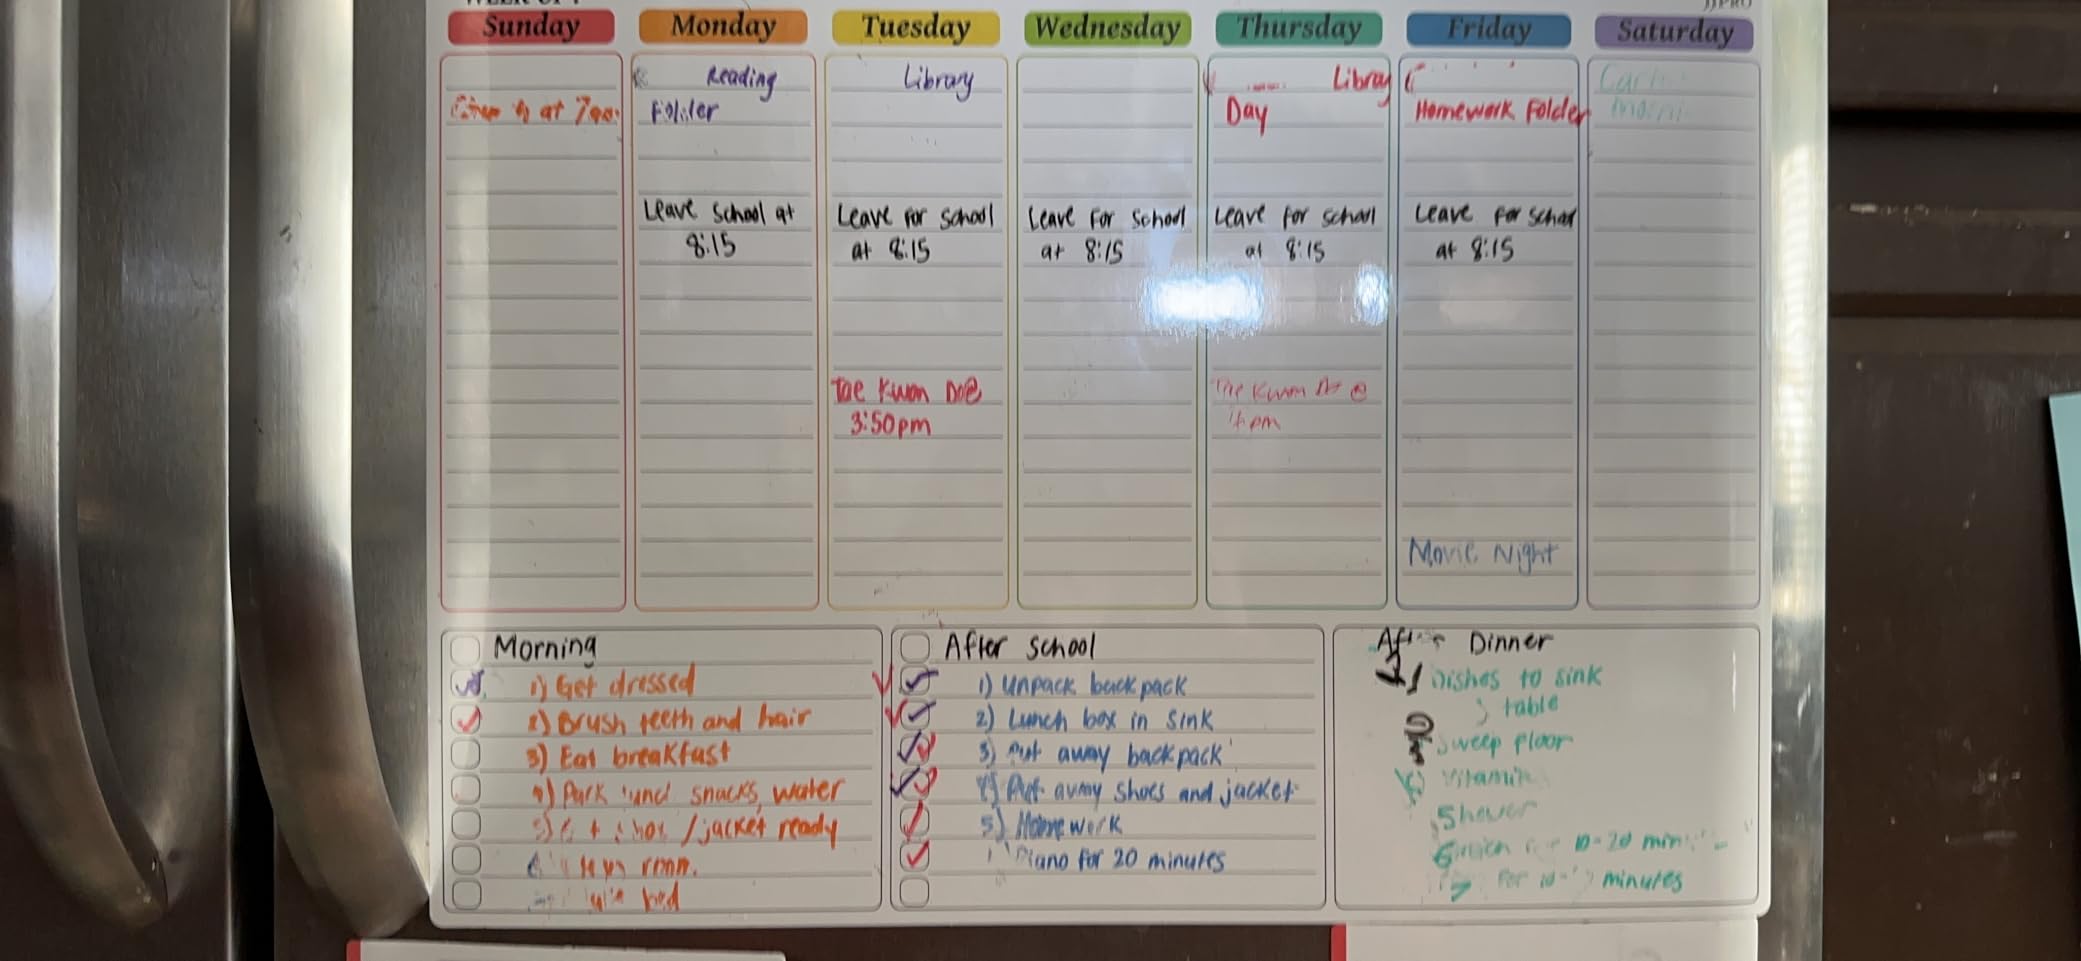 Sunday Monday Tuesday Wednesday Thursday Friday Saturday
at
Reading
Folder
Leave School at
8:15
Library
Leave for school
at 8:15
Tae Kwon Do@
3:50pm
Leave For School
at 8:15
Library
Day
Leave for school
at 8:15
Tae Kwon Do @
4pm
Homework Folder
Leave for school
at 8:15
Movie Night
Morning
1) Get dressed
2) Brush teeth and hair
3) Eat breakfast
4) Pack snacks, water
/jacket ready
room.
bed
After School
1) Unpack backpack
2) Lunch box in sink
3) Put away backpack
4) Put away shoes and jacket
5) Homework
Piano for 20 minutes
After Dinner
Dishes to sink
table
Sweep floor
Vitamin
Shower
10-20
for minutes